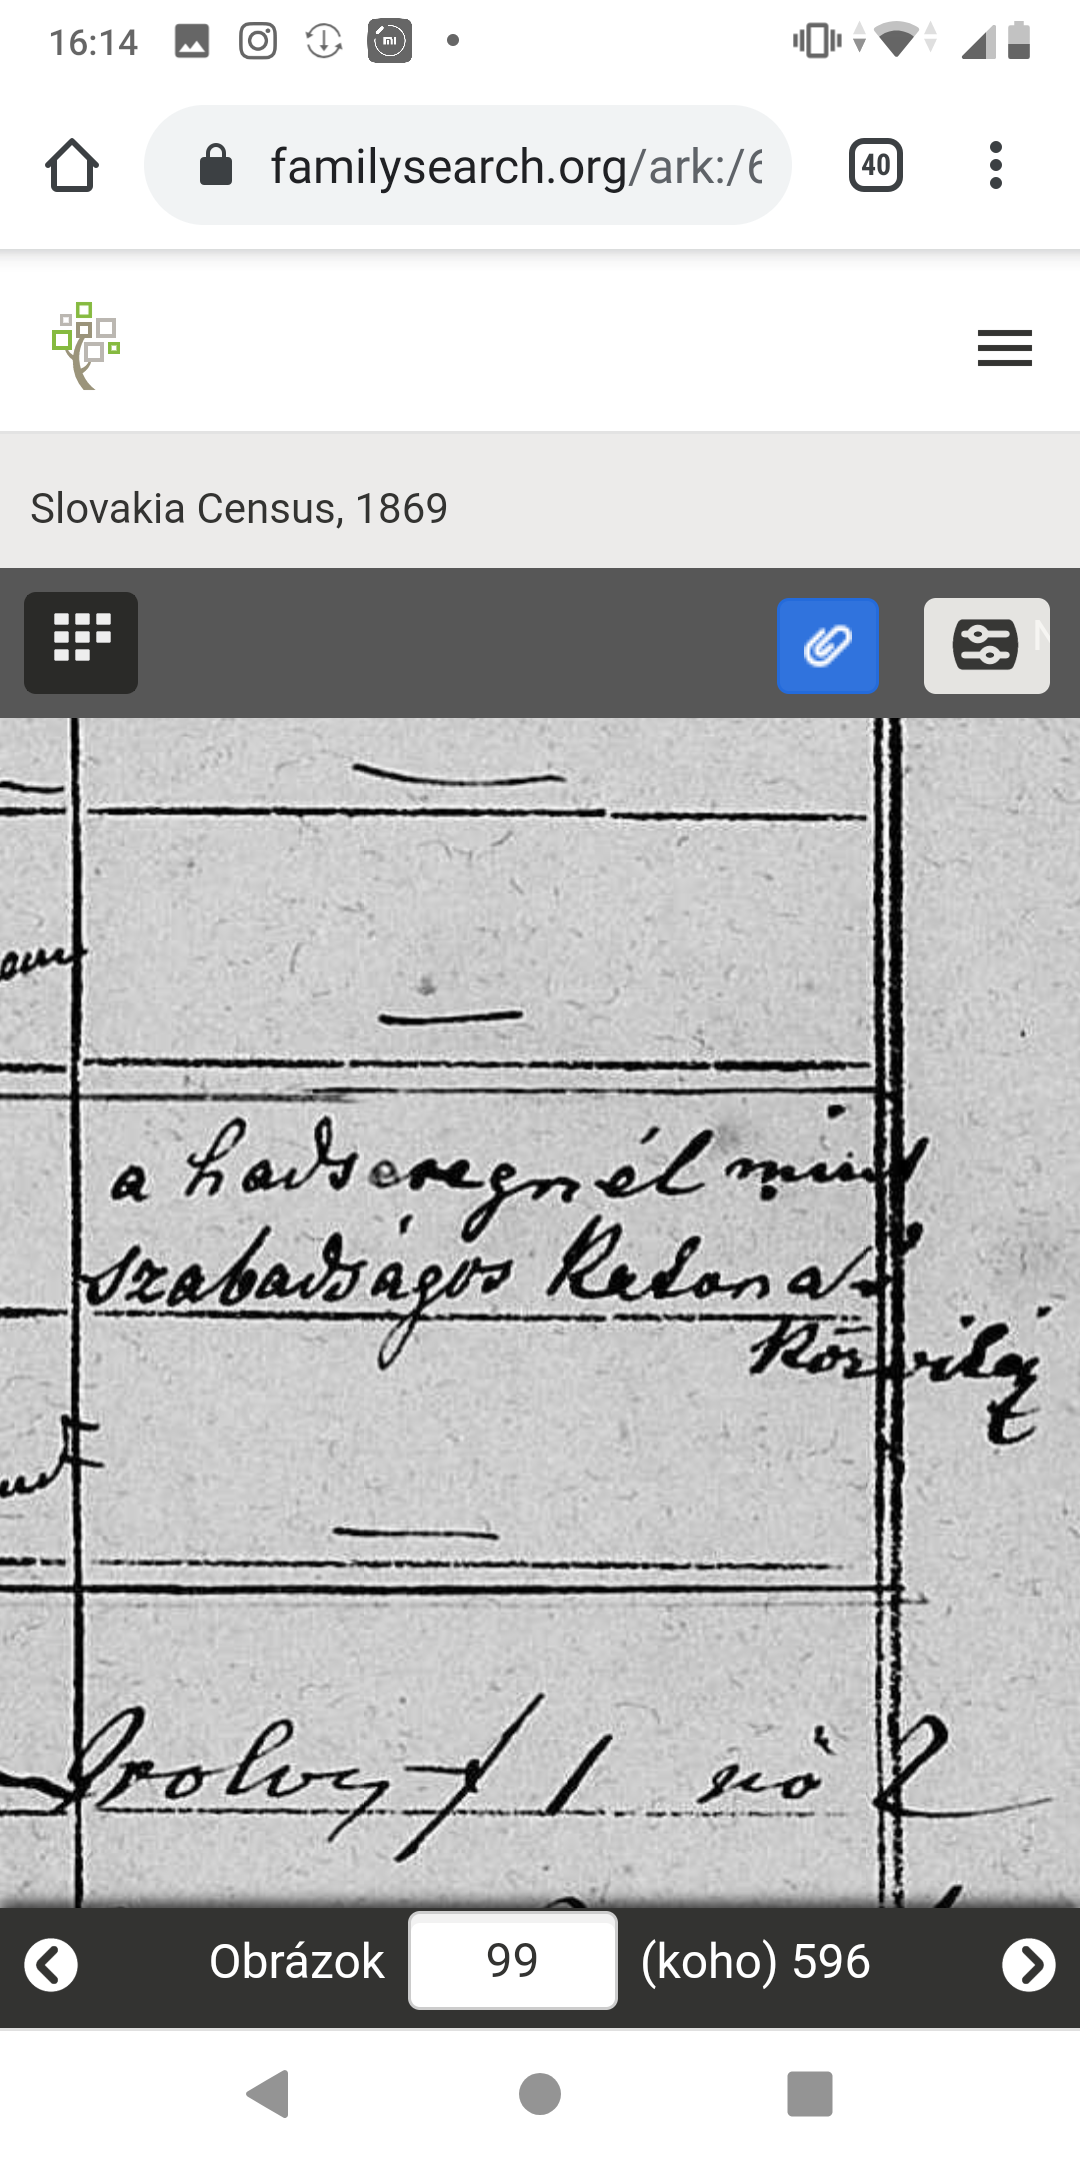 16:14
familysearch.org/ark:/6
40
Slovakia Census, 1869
a hadseregnél mint
szabadságos Katona
Közvité
t
1 nő 2
Obrázok 99 (koho) 596